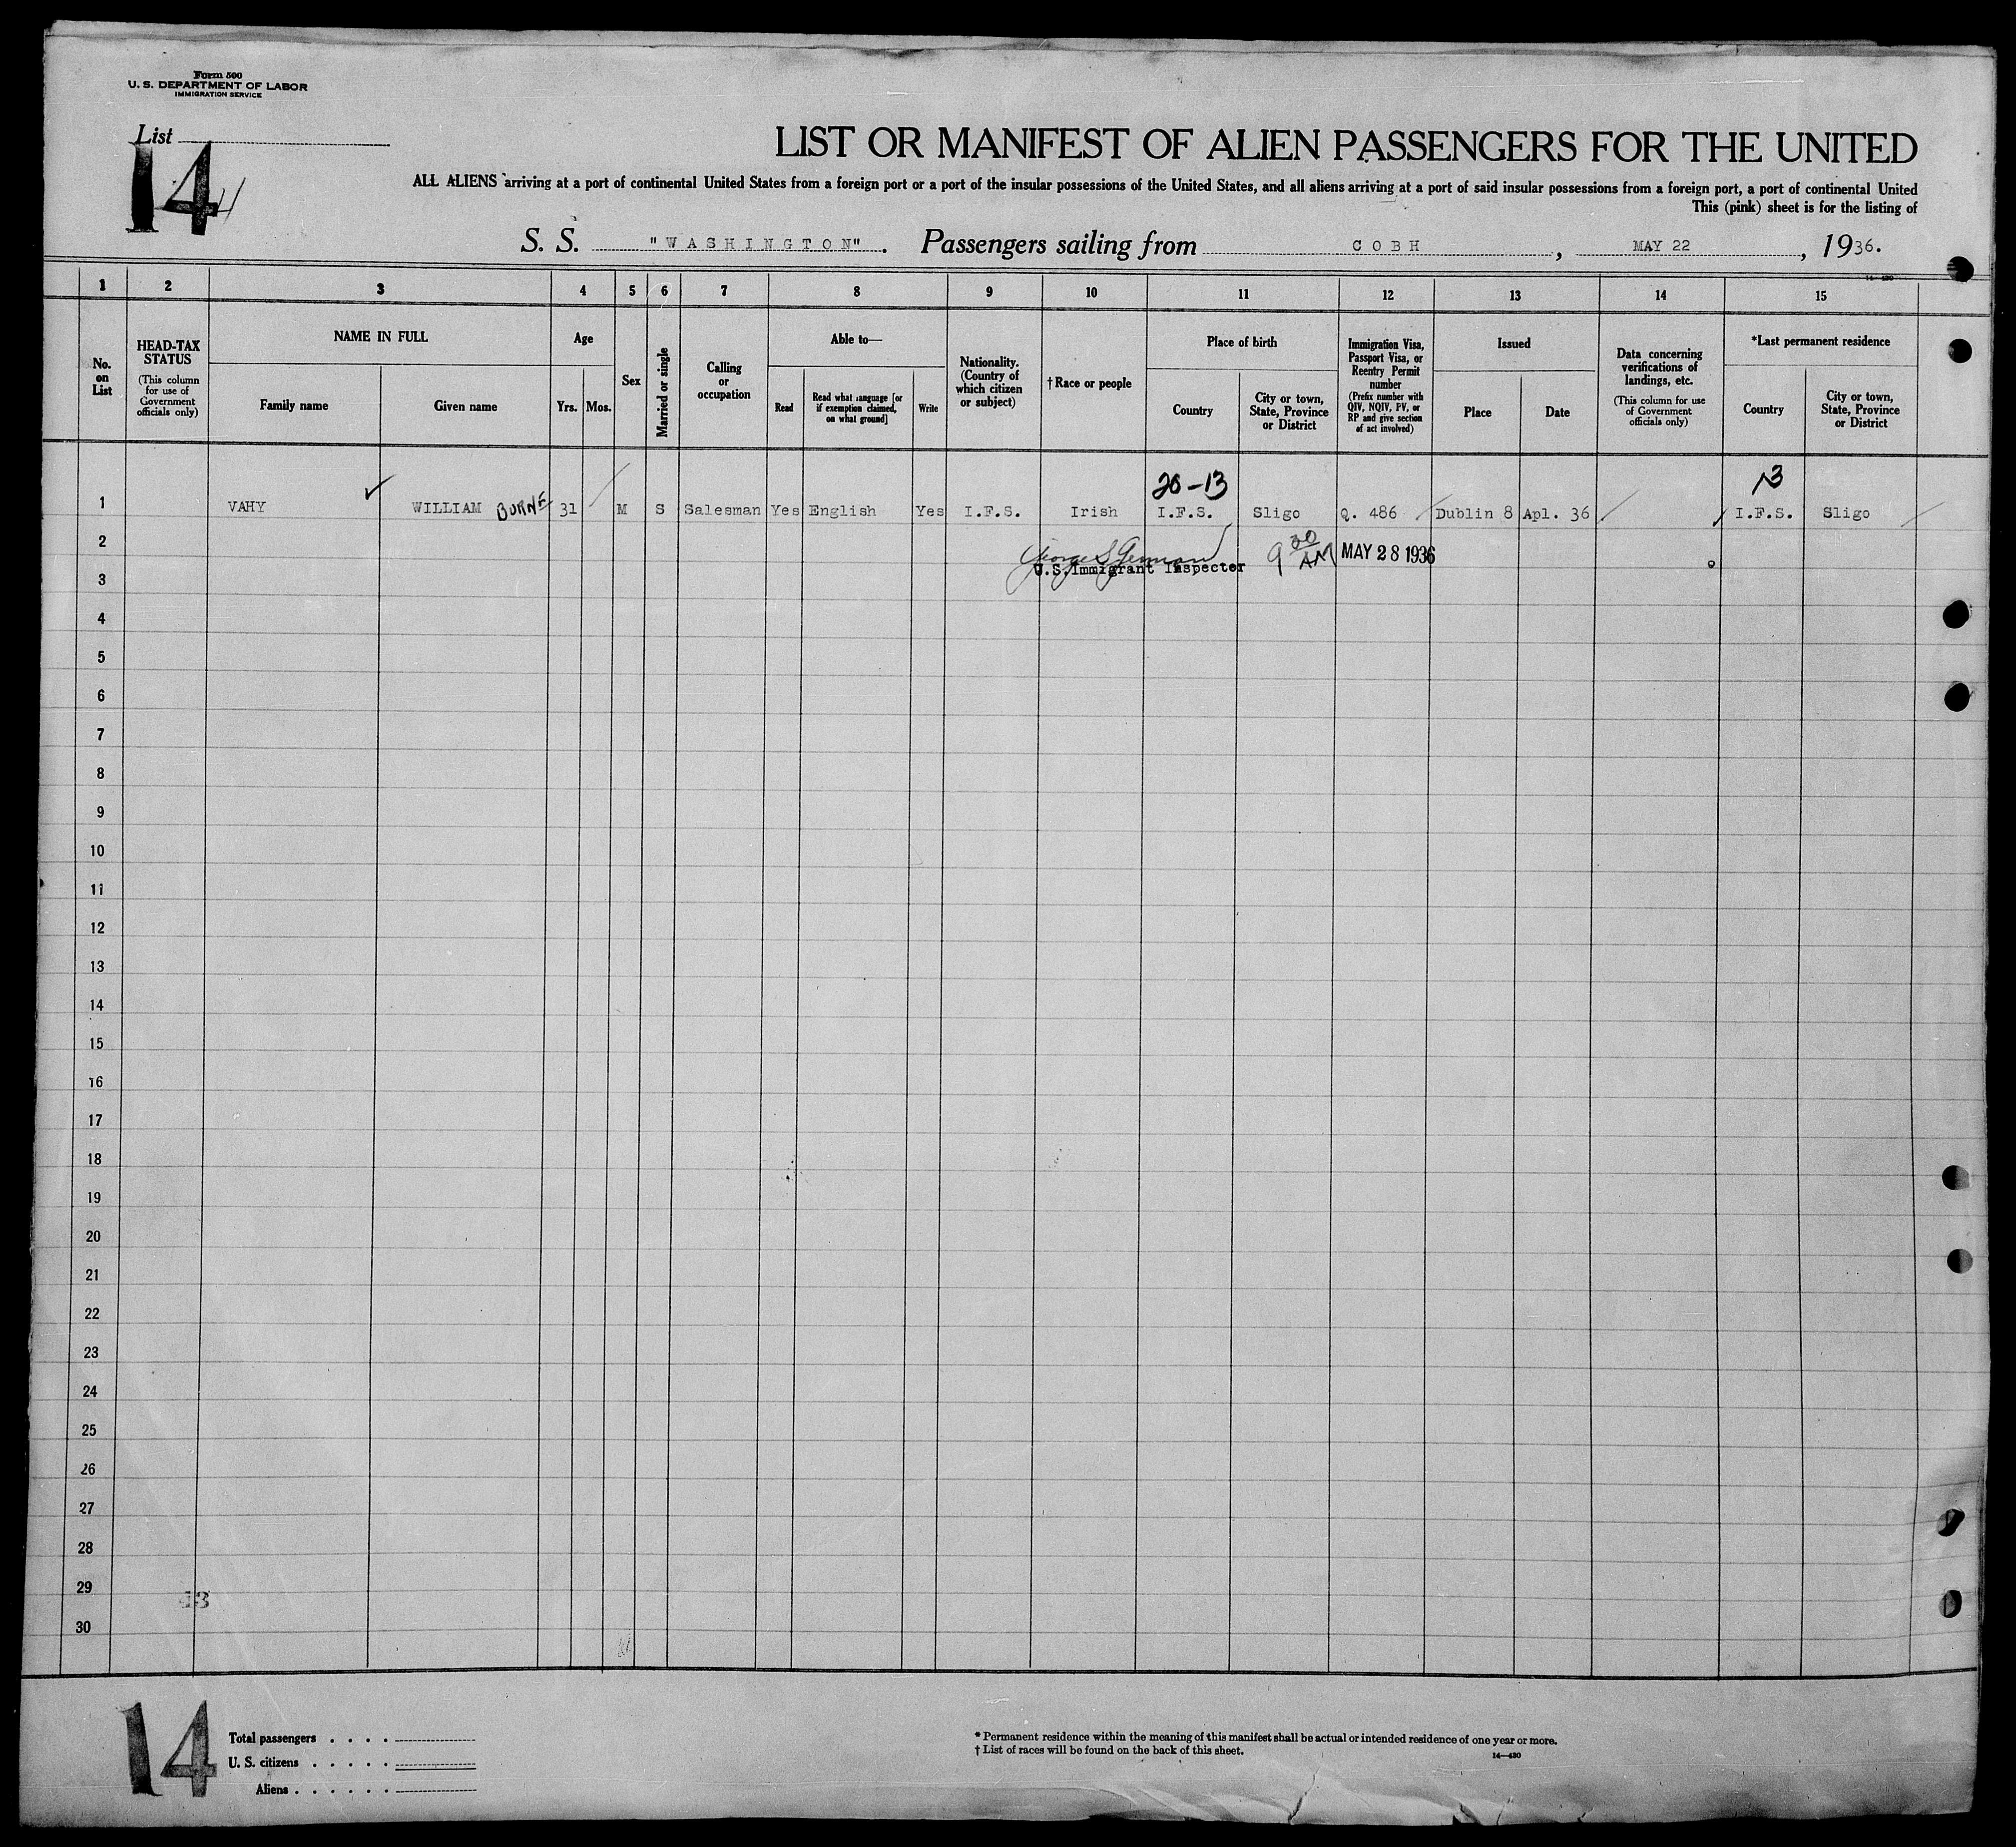 Form 500
U. S. DEPARTMENT OF LABOR
IMMIGRATION SERVICE
List
14
LIST OR MANIFEST OF ALIEN PASSENGERS FOR THE UNITED
ALL ALIENS arriving at a port of continental United States from a foreign port or a port of the insular possessions of the United States, and all aliens arriving at a port of said insular possessions from a foreign port, a port of continental United
This (pink) sheet is for the listing of
S. S. "WASHINGTON". Passengers sailing from COBH, MAY 22, 1936.
14-430
1 2 3 4 5 6 7 8 9 10 11 12 13 14 15
No. on List
HEAD-TAX STATUS
(This column for use of Government officials only)
NAME IN FULL
Family name
Given name
Age
Yrs.
Mos.
Sex
Married or single
Calling or occupation
Able to—
Read
Read what language [or if exemption claimed, on what ground]
Write
Nationality. (Country of which citizen or subject)
† Race or people
Place of birth
Country
City or town, State, Province or District
Immigration Visa, Passport Visa, or Reentry Permit number
(Prefix number with QIV, NQIV, PV, or RP and give section of act involved)
Issued
Place
Date
Data concerning verifications of landings, etc.
(This column for use of Government officials only)
*Last permanent residence
Country
City or town, State, Province or District
20-13
13
1 VAHY WILLIAM BURNE 31 M S Salesman Yes English Yes I.F.S. Irish I.F.S. Sligo Q. 486 Dublin 8 Apl. 36 I.F.S. Sligo
2
George S
9 30 AM
MAY 28 1936
U.S. Immigrant Inspector
3
4
5
6
7
8
9
10
11
12
13
14
15
16
17
18
19
20
21
22
23
24
25
26
27
28
29
30
14
Total passengers . . . .
U. S. citizens . . . . .
Aliens . . . . . .
* Permanent residence within the meaning of this manifest shall be actual or intended residence of one year or more.
† List of races will be found on the back of this sheet.
14—430